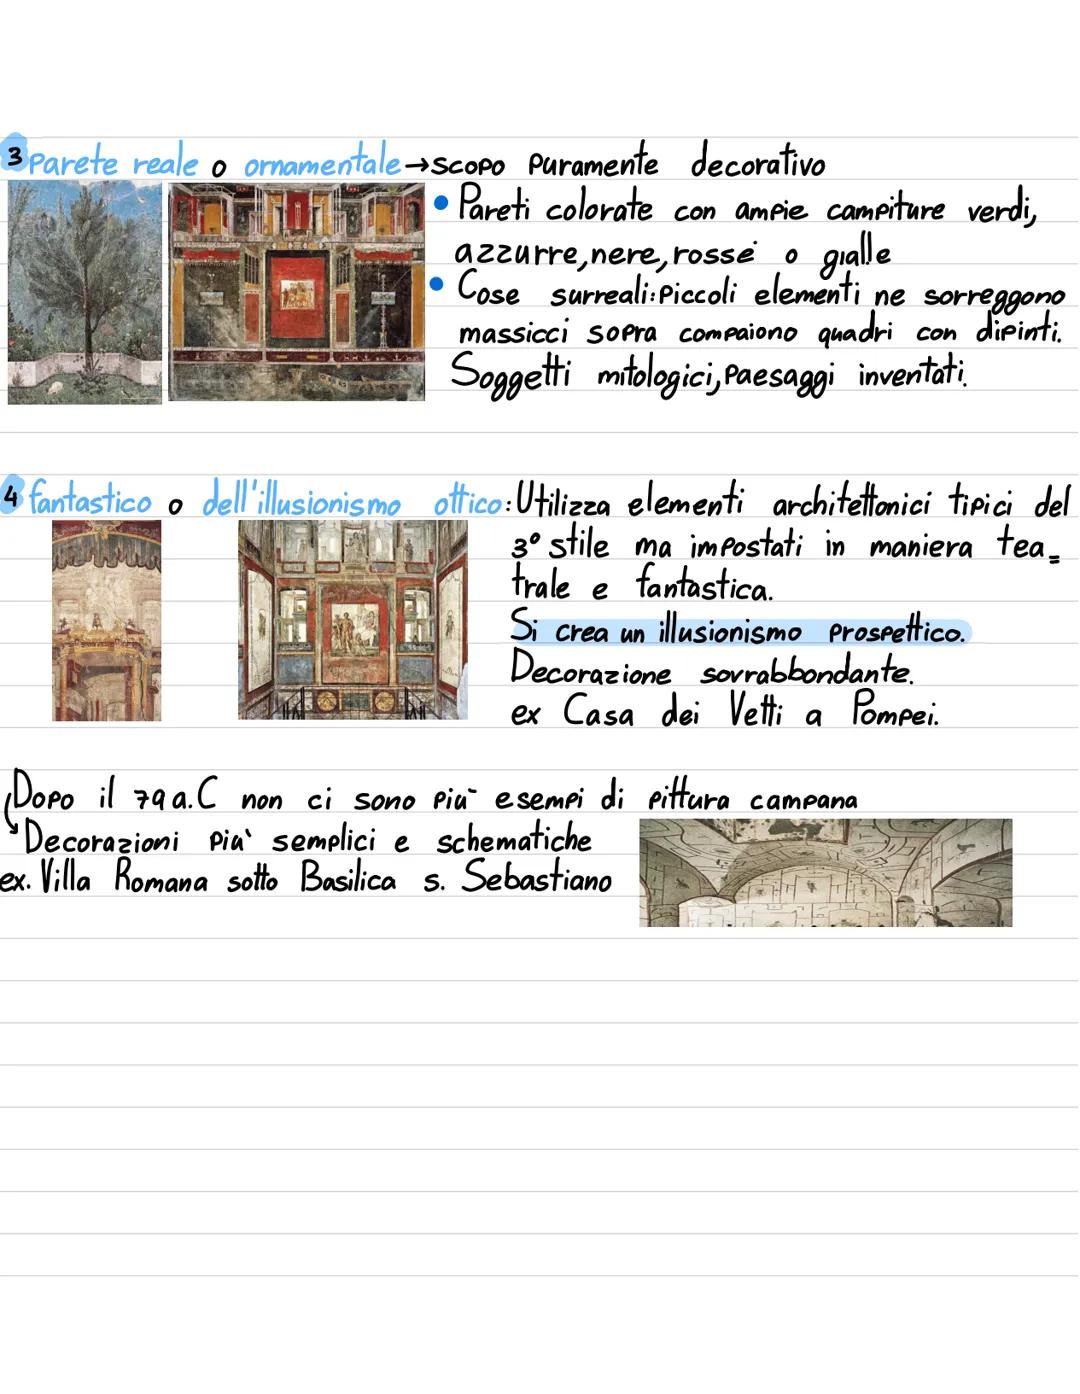 3 parete reale o ornamentale → scopo puramente decorativo
• Pareti colorate con ampie campiture verdi,
azzurre, nere, rosse o gialle
• Cose surreali: Piccoli elementi ne sorreggono
massicci sopra compaiono quadri con dipinti.
Soggetti mitologici, Paesaggi inventati.
4 fantastico o dell'illusionismo ottico: Utilizza elementi architettonici tipici del
3° stile ma impostati in maniera tea=
trale e fantastica.
Si crea un illusionismo prospettico.
Decorazione sovrabbondante.
ex Casa dei Vetti a Pompei.
Dopo il 79 a.C non ci sono più esempi di pittura campana
Decorazioni più semplici e schematiche
ex. Villa Romana sotto Basilica s. Sebastiano